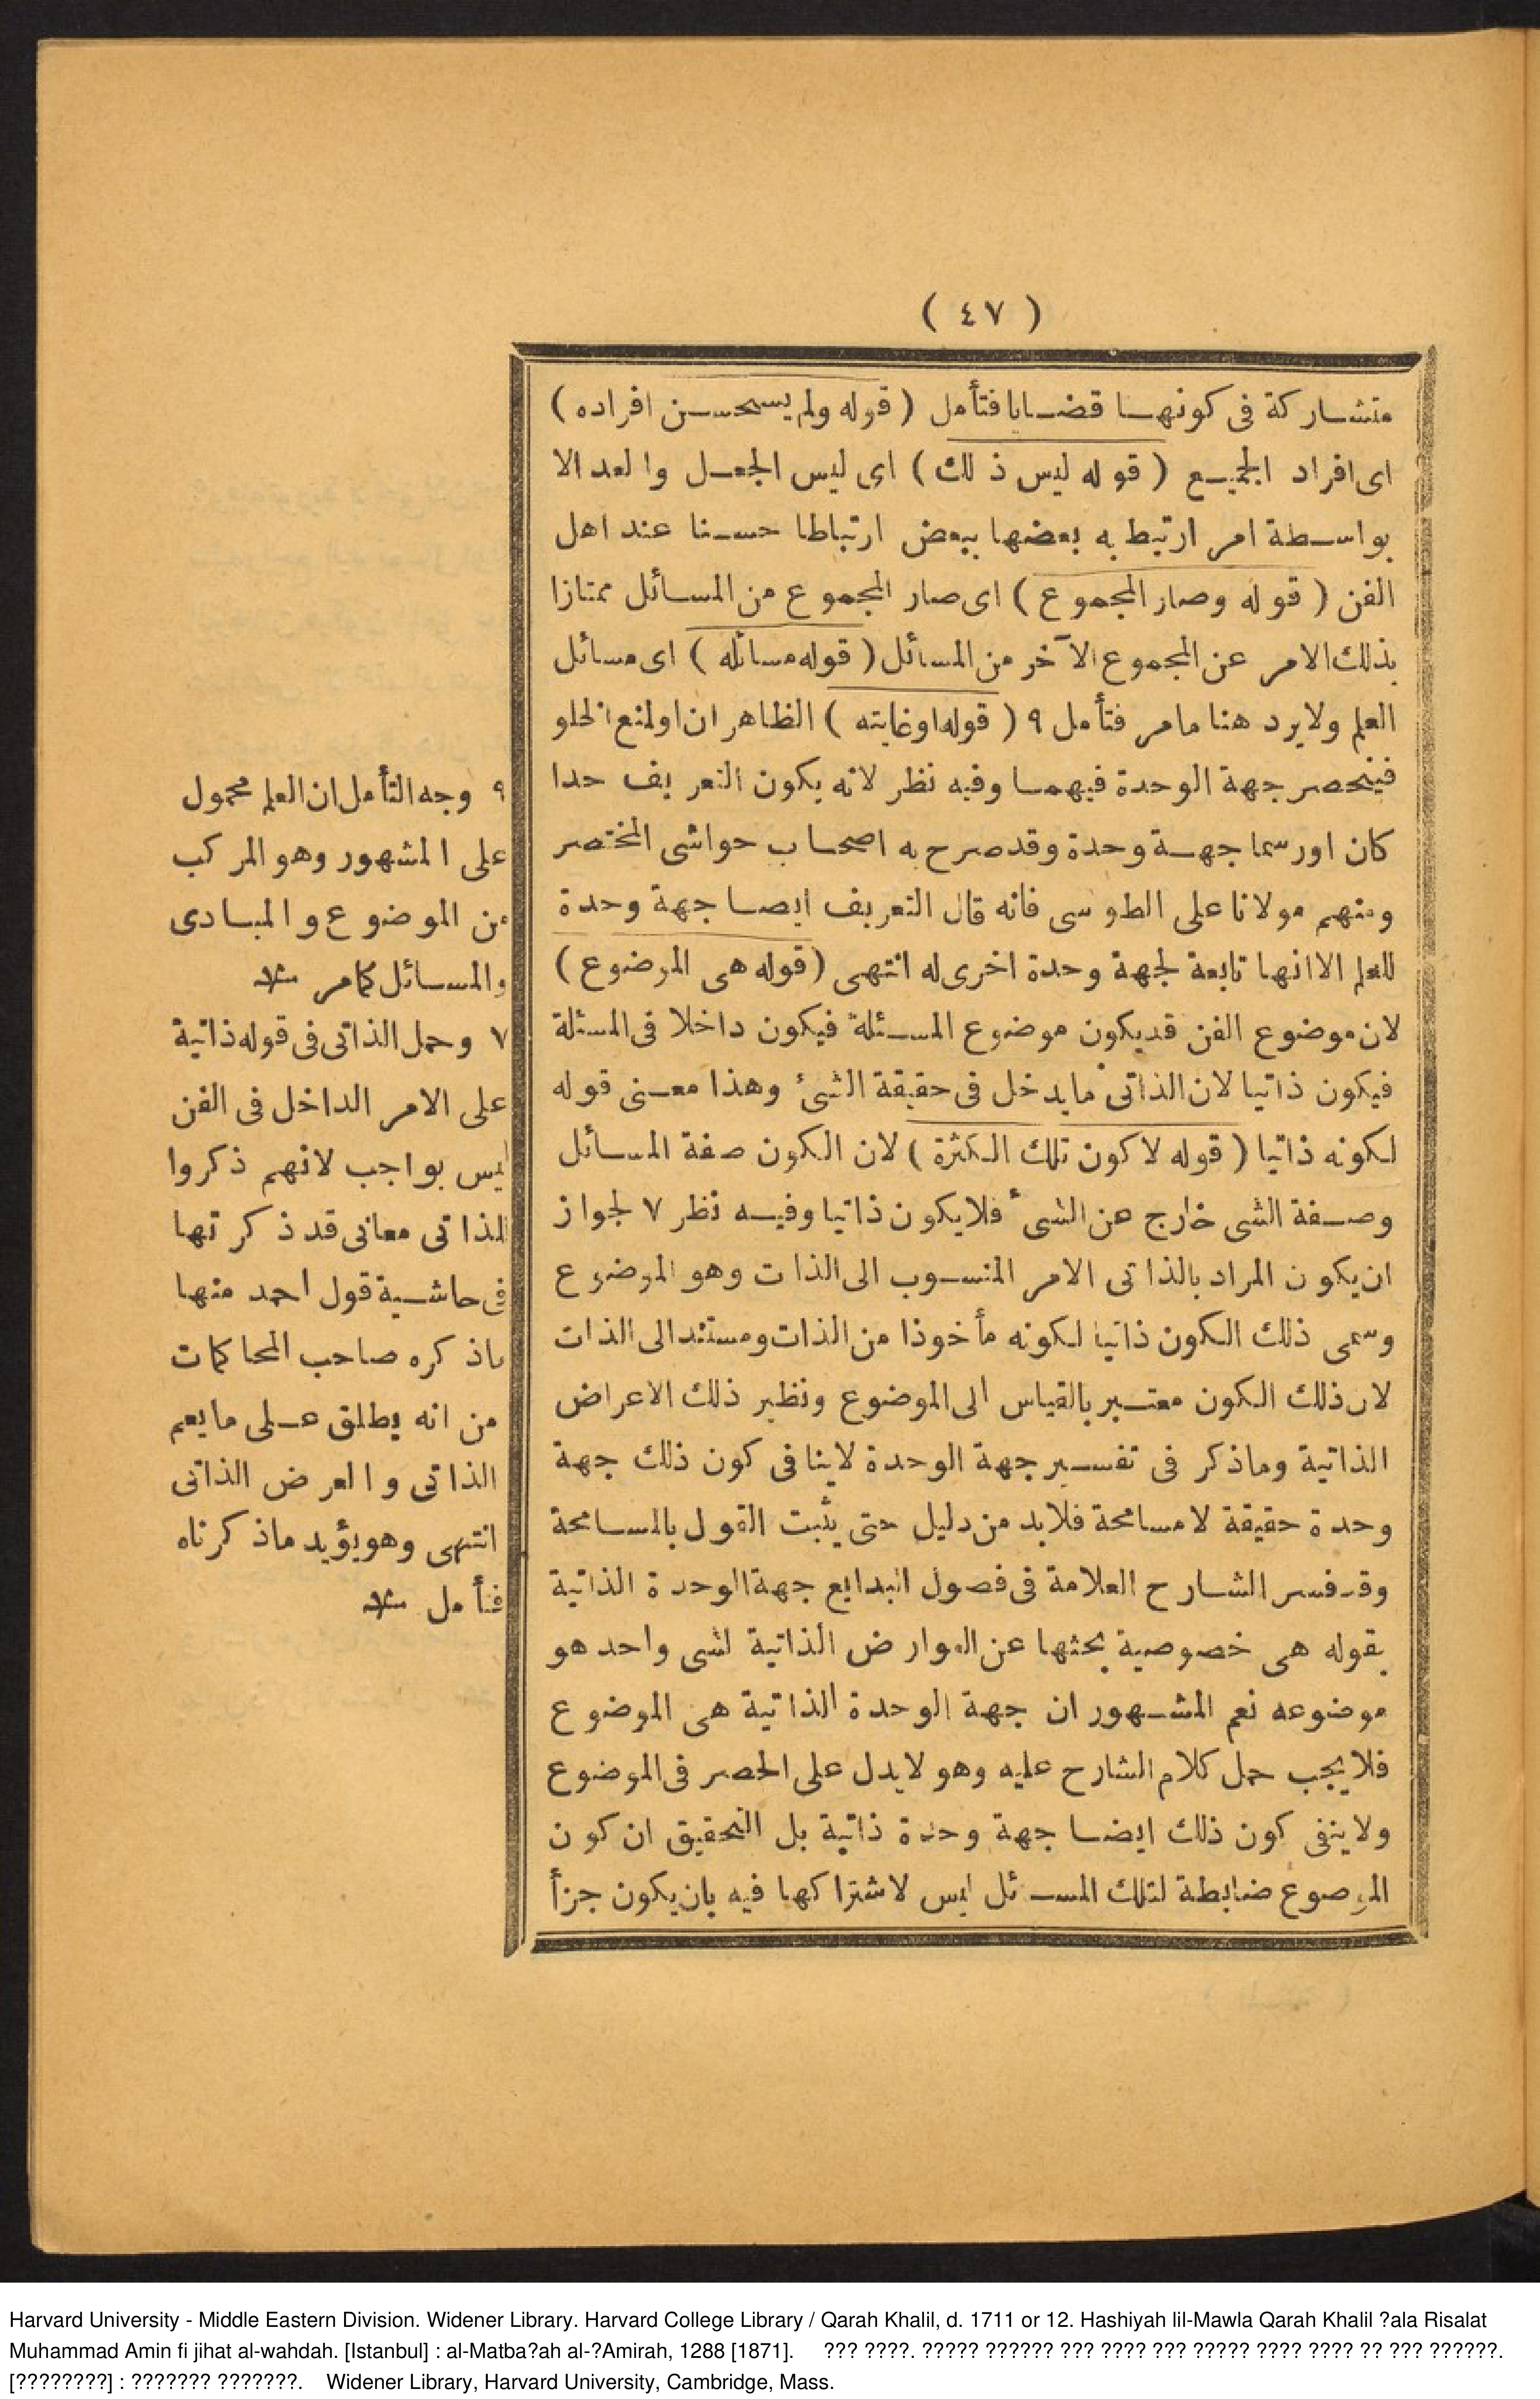 ( ٤٧ )
متشاركة فى كونها قضايا فتأمل ( قوله ولم يستحسن افراده )
اى افراد الجميع ( قوله ليس ذلك ) اى ليس الجعل والعد الا
بواسطة امر ارتبط به بعضها ببعض ارتباطا حسنا عند اهل
الفن ( قوله وصار المجموع ) اى صار المجموع من المسائل ممتازا
بذلك الامر عن المجموع الآخر من المسائل ( قوله مسائله ) اى مسائل
العلم ولا يرد هنا ما مر فتأمل ٩ ( قوله او غايته ) الظاهر ان او لمنع الخلو
فينحصر جهة الوحدة فيهما وفيه نظر لانه يكون التعريف حدا
كان او رسما جهة وحدة وقد صرح به اصحاب حواشى المختصر
ومنهم مولانا على الطوسى فانه قال التعريف ايضا جهة وحدة
للعلم الا انها تابعة لجهة وحدة اخرى له انتهى ( قوله هى الموضوع )
لان موضوع الفن قد يكون موضوع المسئلة فيكون داخلا فى المسئلة
فيكون ذاتيا لان الذاتى ما يدخل فى حقيقة الشئ وهذا معنى قوله
لكونه ذاتيا ( قوله لا كون تلك الكثرة ) لان الكون صفة المسائل
وصفة الشى خارج عن الشىء فلا يكون ذاتيا وفيه نظر ٧ لجواز
ان يكون المراد بالذاتى الامر المنسوب الى الذات وهو الموضوع
وسمى ذلك الكون ذاتيا لكونه مأخوذا من الذات ومستندا الى الذات
لان ذلك الكون معتبر بالقياس الى الموضوع ونظير ذلك الاعراض
الذاتية وما ذكر فى تفسير جهة الوحدة لا ينافى كون ذلك جهة
وحدة حقيقة لا مسامحة فلابد من دليل حتى يثبت القول بالمسامحة
وقد فسر الشارح العلامة فى فصول البدايع جهة الوحدة الذاتية
بقوله هى خصوصية بحثها عن العوارض الذاتية لشى واحد هو
موضوعه نعم المشهور ان جهة الوحدة الذاتية هى الموضوع
فلا يجب حمل كلام الشارح عليه وهو لا يدل على الحصر فى الموضوع
ولا ينفى كون ذلك ايضا جهة وحدة ذاتية بل التحقيق ان كون
الموضوع ضابطة لتلك المسائل ليس لاشتراكها فيه بان يكون جزأ
٩ وجه التأمل ان العلم محمول
على المشهور وهو المركب
من الموضوع والمبادى
والمسائل كما مر منه
٧ وحمل الذاتى فى قوله ذاتية
على الامر الداخل فى الفن
ليس بواجب لانهم ذكروا
للذاتى معانى قد ذكرتها
فى حاشية قول احمد منها
ماذكره صاحب المحاكمات
من انه يطلق على ما يعم
الذاتى والعرض الذاتى
انتهى وهو يؤيد ماذكرناه
فتأمل منه
Harvard University - Middle Eastern Division. Widener Library. Harvard College Library / Qarah Khalil, d. 1711 or 12. Hashiyah lil-Mawla Qarah Khalil ?ala Risalat
Muhammad Amin fi jihat al-wahdah. [Istanbul] : al-Matba?ah al-?Amirah, 1288 [1871]. ??? ????. ????? ?????? ??? ???? ??? ????? ???? ???? ?? ??? ??????.
[????????] : ??????? ???????. Widener Library, Harvard University, Cambridge, Mass.